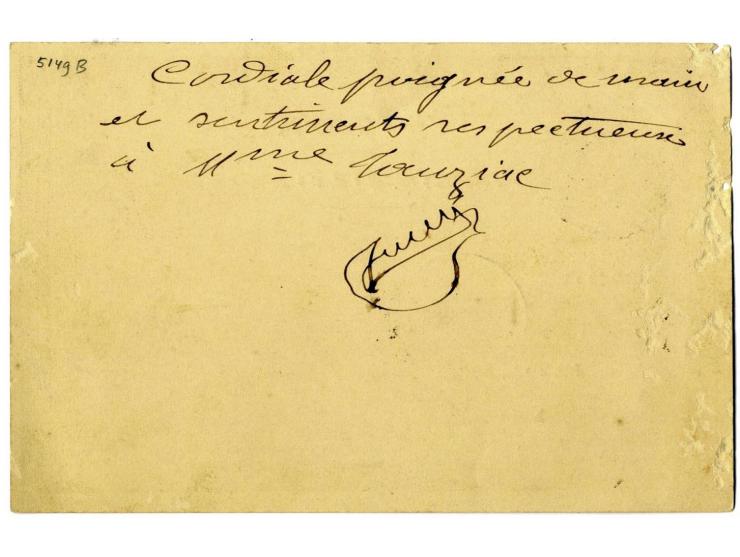 5149 B
Cordiale poignée de main
et sentiments respectueux
à Mme Tauziac